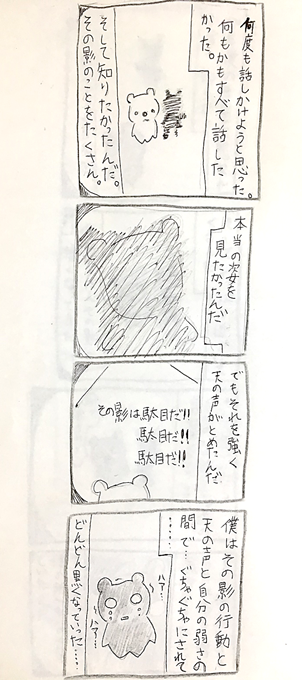 何度も話しかけようと思った。
何もかもすべて話した
かった。
そして知りたかったんだ。
その影のことをたくさん。
本当の姿を
見たかったんだ
でもそれを強く
天の声がとめたんだ
その影は駄目だ!!
駄目だ!!
駄目だ!!
僕はその影の行動と
天の声と自分の弱さの
間で…ぐちゃぐちゃにされて
……
ハア…
ハア…
どんどん黒くなっていった……